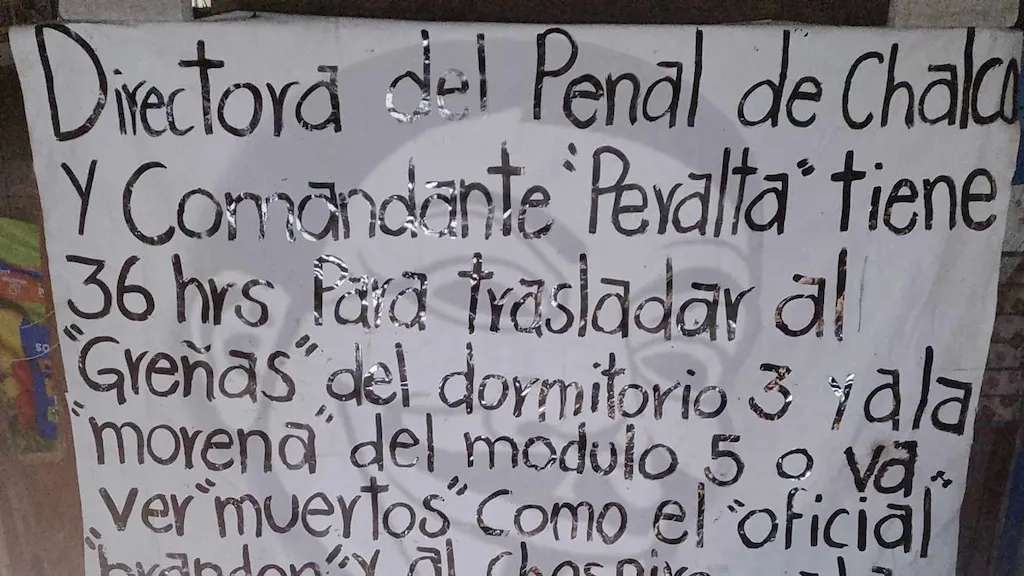 Directora del Penal de Chalco
Y Comandante "Peralta" tiene
36 hrs Para trasladar al
"Greñas" del dormitorio 3 y a la
"morena" del modulo 5 o va
ver "muertos" Como el "oficial"
"brandon" Y al